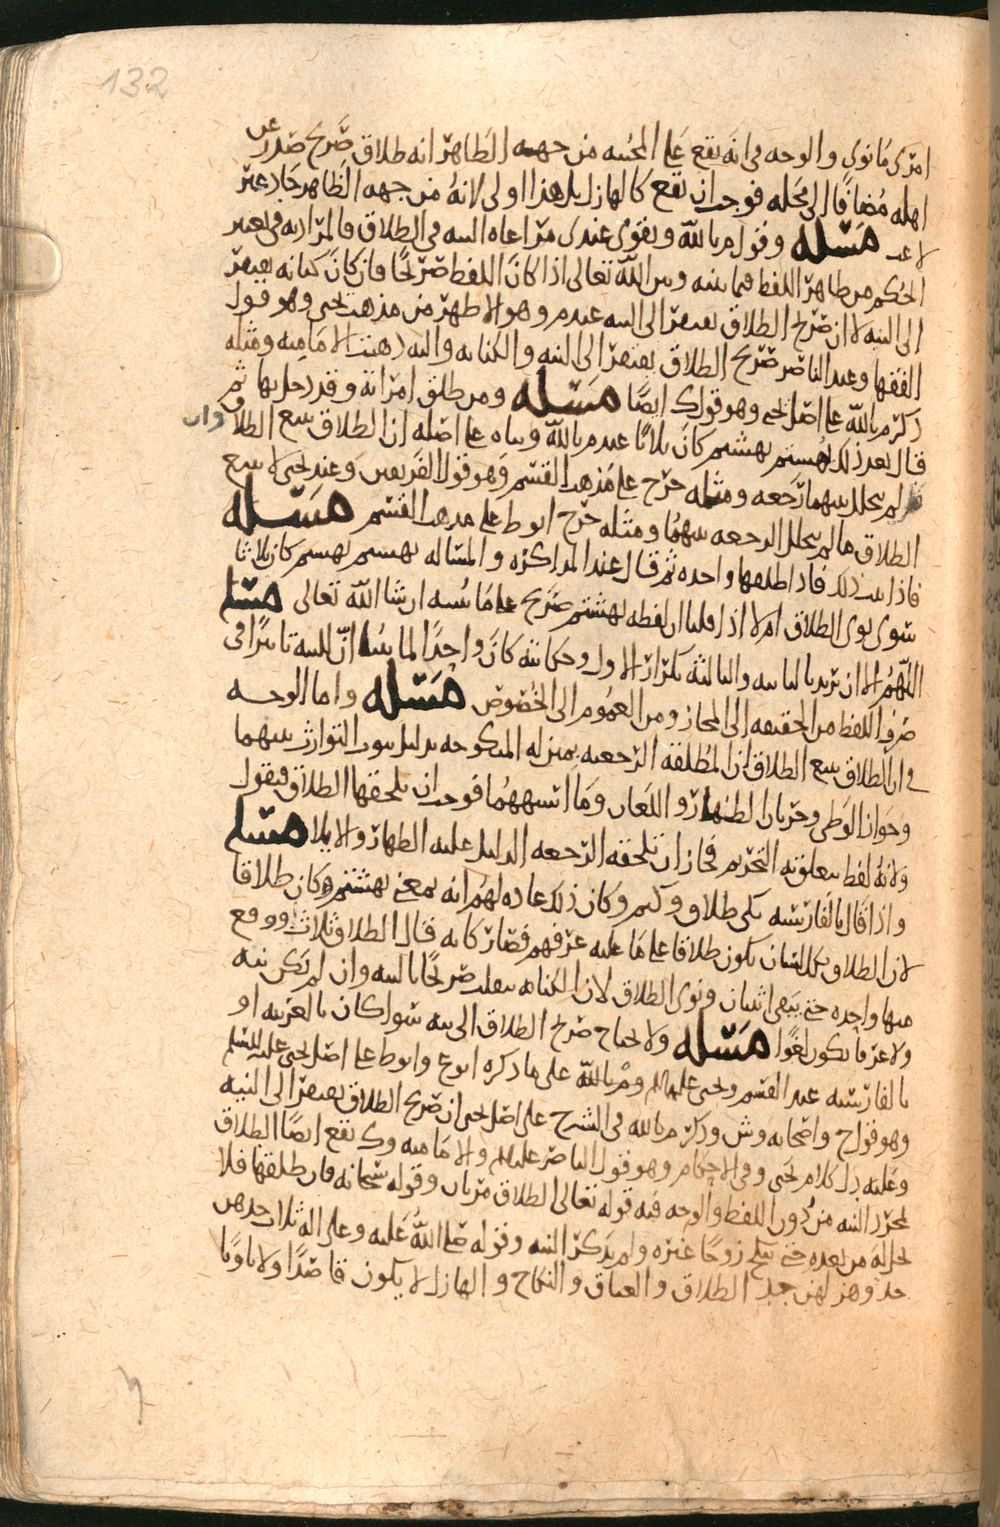 132
امرى ما نوى والوجه في انه يقع على المحبه من جهه الظاهر انه طلاق صريح صدر عن
اهله مُضافًا الى محله فوجب ان يقع كالهازل بل هذا اولى لانهُ من جهه الظاهر جاد غير
لاعب مَسْله وقول م بالله ويقوى عندى مراعاه النيه في الطلاق فالمراد به في تغيير
الحُكم من ظاهر اللفظ فيما بينه وبين الله تعالى اذا كان اللفظ صريحًا فان كان كنايه يفتقر
الى النيه لان صريح الطلاق يفتقر الى النيه عند م وهو الاظهر من مذهب يحيى وهو قول
الفقها وعند الناصر صريح الطلاق يفتقر الى النيه والكنايه واليه ذهبت الاماميه ومثله
ذكر م بالله على اصل يحيى وهو قول ك ايضًا مَسْله ومن طلق امراته وقد دخل بها ثم
قال بعد ذلك بهشتم بهشتم كان ثلاثا عند م بالله وبناه على اصله ان الطلاق يتبع الطلاق وان
لم يتخلل بينهما رجعه ومثله خرّج على مذهب القسم وهو قول الفريقين وعند يحيى لا يتبع
الطلاق ما لم يتخلل الرجعه بينهما ومثله خرج ابو ط على مذهب القسم مَسْله
فاذا ثبت ذلك فاذا طلقها واحده ثم قال عند المذاكره والمساله بهشتم بهشتم كان ثلاثا
سوى نوى الطلاق ام لا اذا قلنا ان لفظه بهشتم صريح على ما نبينه ان شا الله تعالى مسله
اللهُم الا ان يريد بالثانيه والثالثه تكرار الاول وحكايته كان واحدًا لما بينا انّ للنيه تاثيرًا في
صرف اللفظ من الحقيقه الى المجاز ومن العمُوم الى الخُصُوص مَسْله واما الوجه
في ان الطلاق يتبع الطلاق ان المُطلقه الرجعيه بمنزله المنكوحه بدليل ثبوت التوارث بينهما
وجواز الوطى وجريان الظهار واللعان وما اشبههُما فوجب ان يلحقها الطلاق فيقول
ولانهُ لفظ يتعلق به التحريم فجاز ان تلحقه الرجعه الدليل عليه الظهار والايلا مسله
واذا قال بالفارسيه يكى طلاق وكيم وكان ذلك عاده لهُم انه بمعنى بهشتم كان طلاقا
لان الطلاق بكل لسان يكون طلاقا على ما عليه عرفهم فصار كانه قال الطلاق ثلاث ووقع
منها واحده حتى يبقى اثنان ونوى الطلاق لان الكنايه ينقلب صريحًا بالنيه وان لم يكن نيه
ولا عرفا يكون لغوًا مَسْله ولا يحتاج صريح الطلاق الى نيه سوا كان بالعربيه او
بالفارسيه عند القسم ويحيى عليهما وم بالله على ما ذكره ابو ع وابو ط على اصل يحيى عليه السلم
وهو قول ح واصحابه وش وذكر م بالله في الشرح على اصل يحيى ان صريح الطلاق يفتقر الى النيه
وعليه دل كلام يحيى وفي الاحكام وهو قول الناصر عليلم والاماميه وك يقع ايضًا الطلاق
لمجرد النيه من دون اللفظ والوجه فيه قوله تعالى الطلاق مرتان وقوله سُبحانه فان طلقها فلا
تحل له من بعده حتى تنكح زوجًا غيره ولم يذكر النيه وقوله صلى اللهُ عليه وعلى اله ثلاث جدهن
جد وهزلهن جد الطلاق والعتاق والنكاح والهازل لا يكون قاصدًا ولا ناويًا